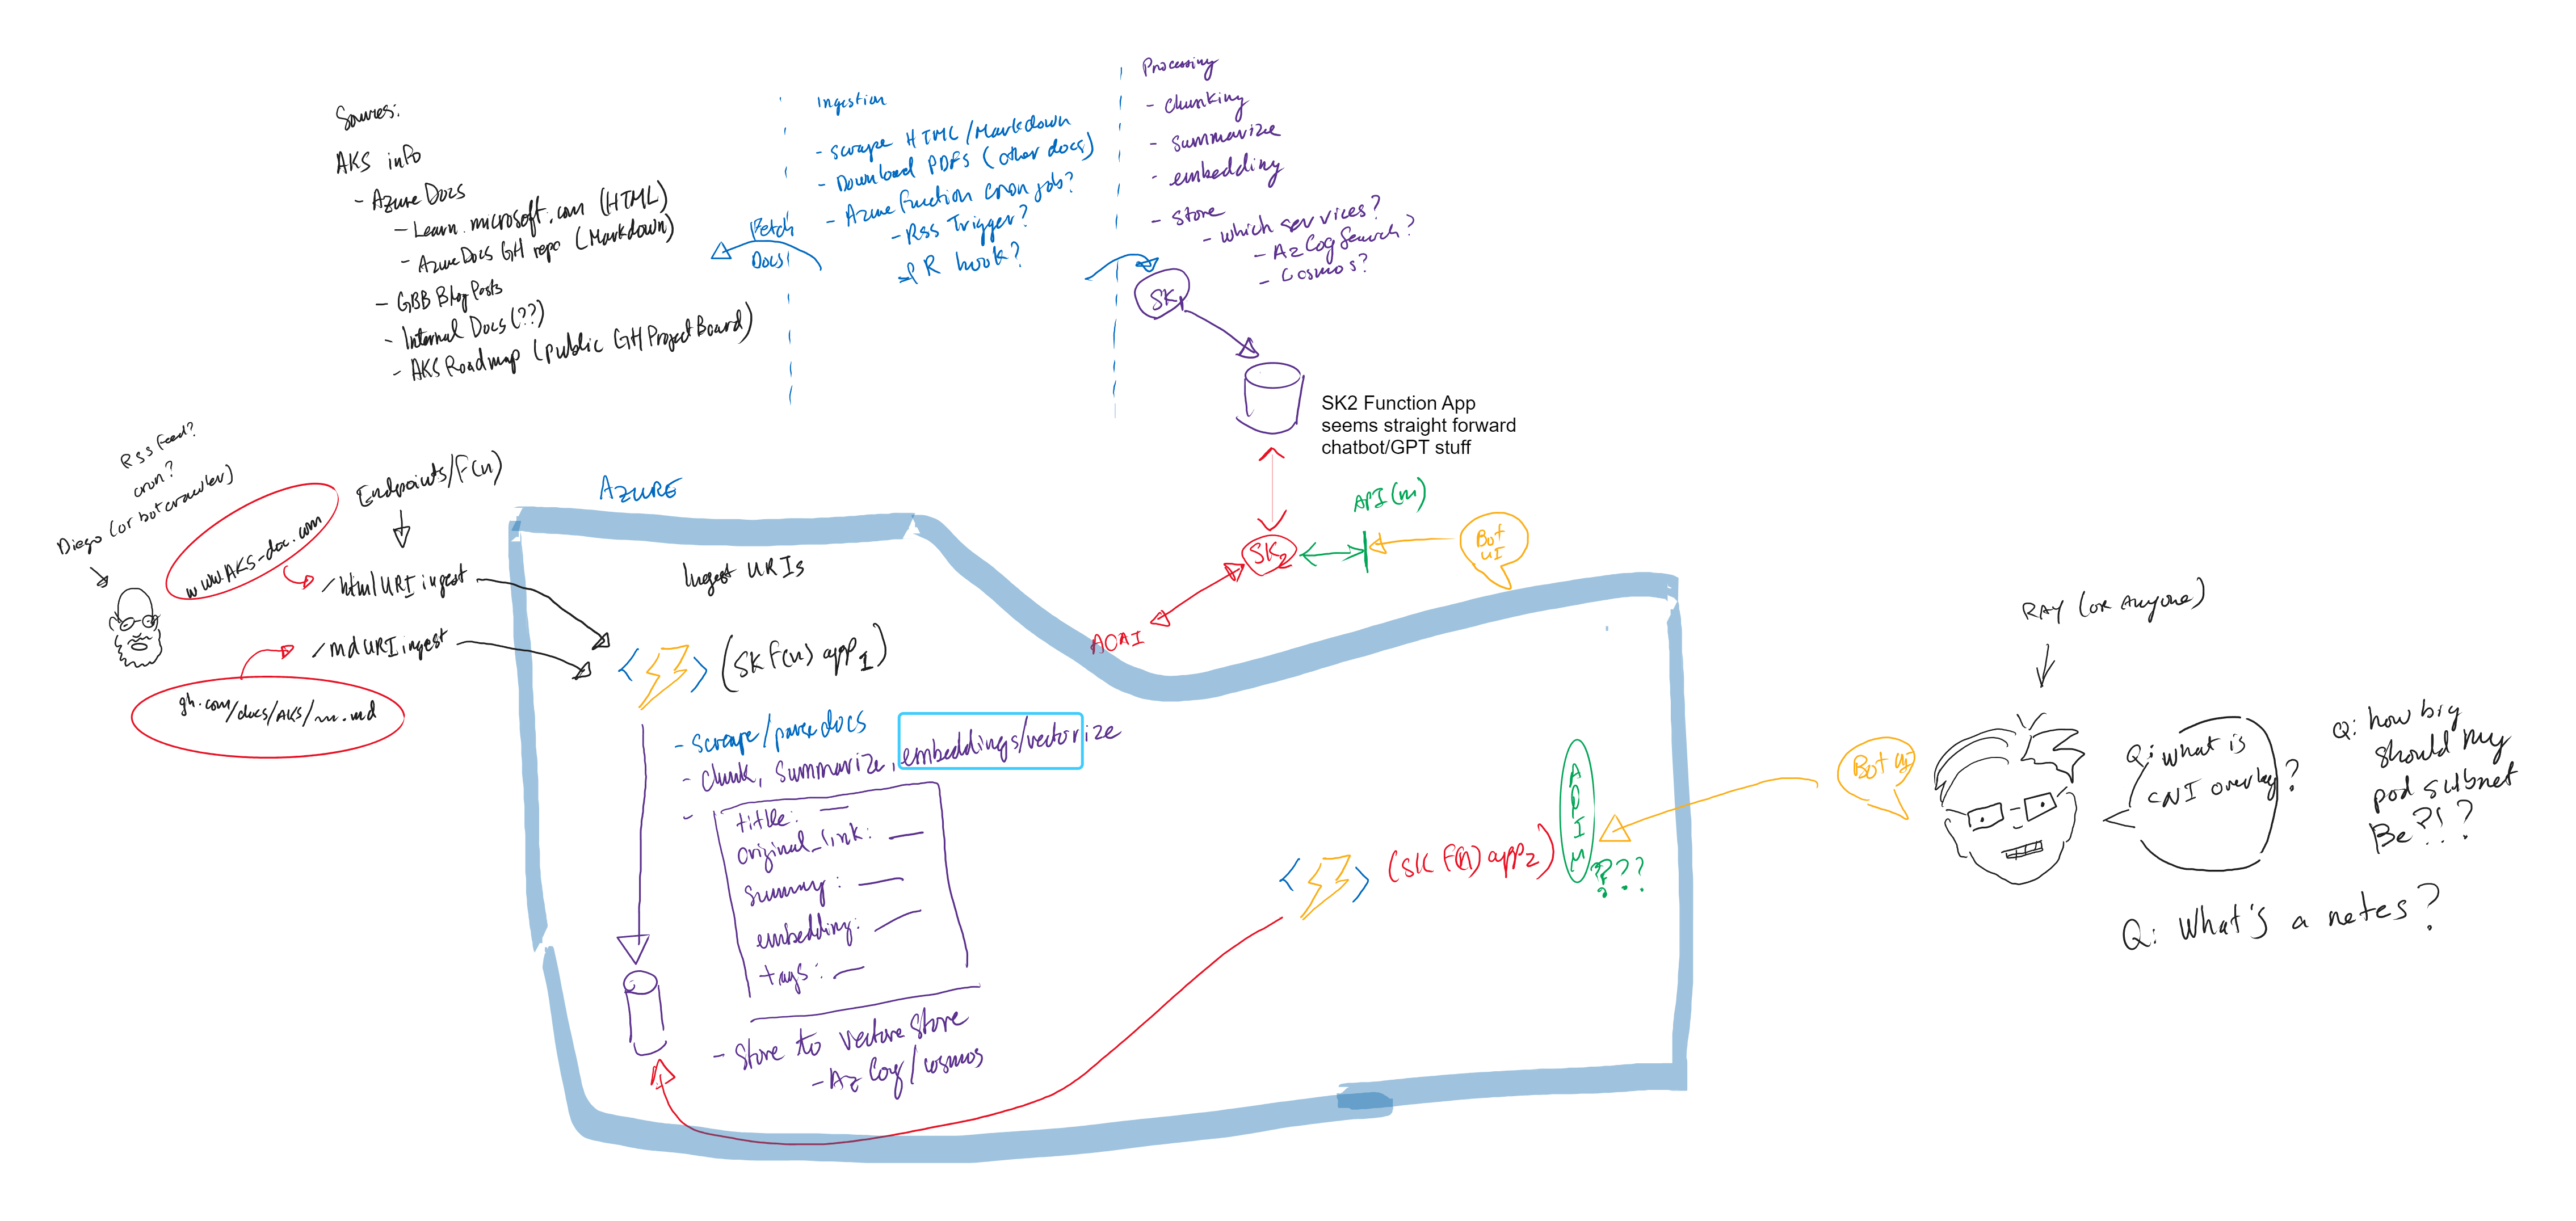 Sources:
AKS info
- Azure Docs
- Learn.microsoft.com (HTML)
- Azure Docs GH repo (Markdown)
- GBB Blog Posts
- Internal Docs (??)
- AKS Roadmap (public GH Project Board)
Fetch
Docs
Ingestion
- scrape HTML/Markdown
- Download PDFs (other docs)
- Azure Function cron job?
- RSS Trigger?
PR hook?
Processing
- chunking
- summarize
- embedding
- store
- which services?
- Az Cog Search?
- Cosmos?
SK1
SK2 Function App
seems straight forward
chatbot/GPT stuff
API(m)
SK2
Bot
UI
AOAI
RSS feed?
cron?
Diego (or bot crawler)
Endpoints/F(n)
www.AKS-doc.com
/htmlURI ingest
/mdURI ingest
gh.com/docs/AKS/m.md
AZURE
Ingest URIs
< > (SK F(n) app1)
- scrape/parse docs
- chunk, summarize, embeddings/vectorize
-
titlle: —
original_link: —
summary: —
embedding: —
tags: —
- Store to vectore store
- Az Cog/cosmos
< > (SK F(n) app2)
APIM
???
Bot UI
RAY (or Anyone)
Q: what is
CNI overlay?
Q: how big
should my
pod subnet
Be?!?
Q: What's a netes?